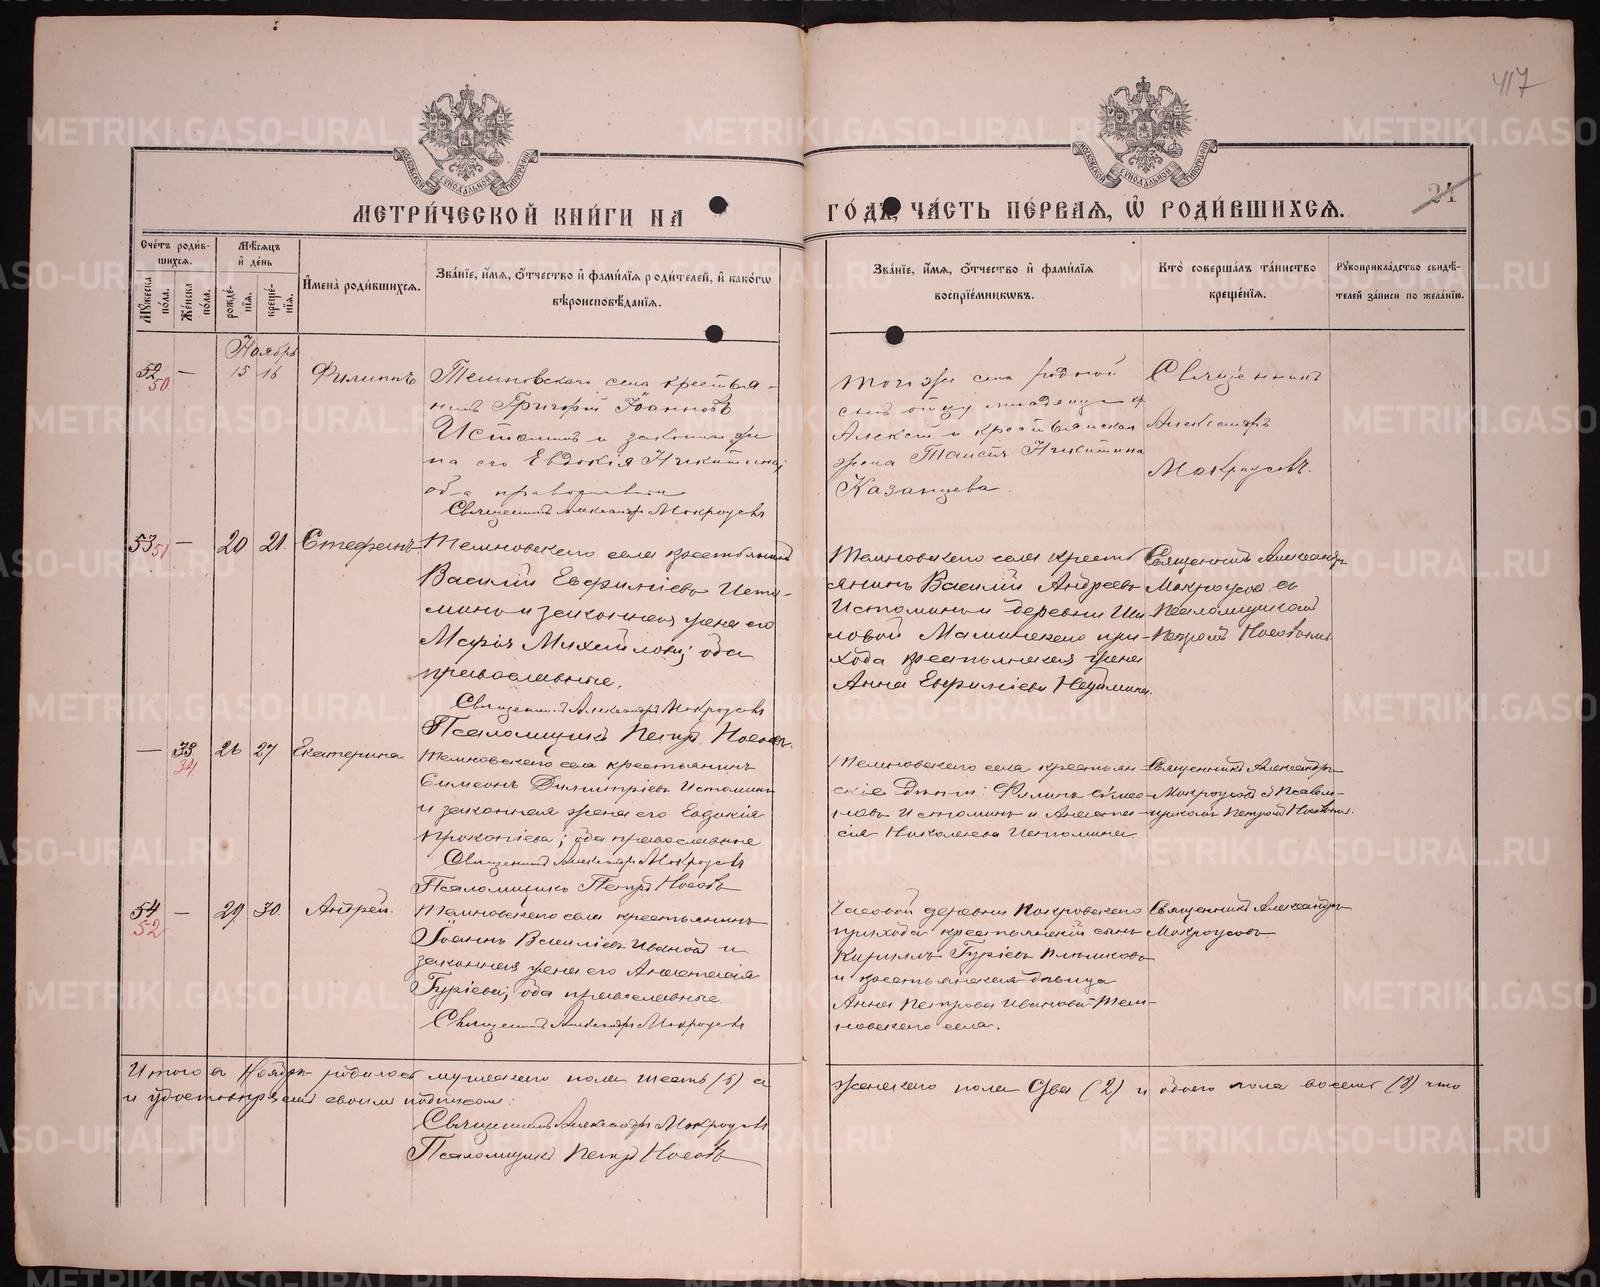 417
МОСКОВСКОЙ СѴНОДАЛЬНОЙ ТИПОГРАФІИ
МОСКОВСКОЙ СѴНОДАЛЬНОЙ ТИПОГРАФІИ
21
МЕТРИ́ЧЕСКОЙ КНИ́ГИ НА
ГО́ДЪ, ЧА́СТЬ ПЕ́РВАЯ, Ѡ҆ РОДИ́ВШИХСЯ.
Сче́тъ роди́в-
шихся.
Мꙋ́жеска по́ла.
Же́нска по́ла.
Мѣ́сяцъ
и҆ де́нь
рожде́-
нїя.
креще́-
нїя.
И҆мена̀ роди́вшихся.
Зва́нїе, и҆́мя, ѻ҆́тчество и҆ фами́лїя роди́телей, и҆ како́гѡ
вѣроисповѣ́данїя.
Зва́нїе, и҆́мя, ѻ҆́тчество и҆ фами́лїя
воспрїе́мникѡвъ.
Кто̀ соверша́лъ та́инство
креще́нїя.
Рꙋкоприкла́дство свидѣ́-
телей за́писи по жела́нїю.
Ноябрь
52 50 — 15 16 Филиппъ
Темновскаго села крестья-
нинъ Григорій Іоанновъ
Истоминъ и законная же-
на его Евдокія Никитина;
оба православные
Священникъ Александръ Мокроусовъ
того же села родной
сынъ отцу младенца
Алексѣй и крестьянская
жена Таисія Никитина
Казанцева.
Священникъ
Александръ
Мокроусовъ.
53 51 — 20 21. Стефанъ.
Темновскаго села крестьянинъ
Василій Евфиміевъ Исто-
минъ и законная жена его
Марія Михайлова; оба
православные.
Священникъ Александръ Мокроусовъ
Псаломщикъ Петръ Носовъ.
Темновскаго села кресть-
янинъ Василій Андреевъ
Истоминъ и деревни Ши-
ловой Маминскаго при-
хода крестьянская жена
Анна Евфиміева
Священникъ Александръ
Мокроусовъ съ
Псаломщикомъ
Петромъ Носовымъ
— 33 34 26 27 Екатерина
Темновскаго села крестьянинъ
Симеонъ Димитріевъ Истоминъ
и законная жена его Евдокія
Прокопіева; оба православные
Священникъ Александръ Мокроусовъ
Псаломщикъ Петръ Носовъ
Темновскаго села крестьян-
скіе дѣти: Филипъ
Истоминъ и
Николаева Истомина
Священникъ Александръ
Мокроусовъ съ Псалом-
щикомъ Петромъ Носовымъ.
54 52 — 29 30. Андрей.
Темновскаго села крестьянинъ
Іоаннъ Василіевъ Ивановъ и
законная жена его Анастасія
Гуріева; оба православные.
Священникъ Александръ Мокроусовъ
Часовой деревни Покровскаго
прихода крестьянскій сынъ
Кириллъ Гуріевъ
и крестьянская дѣвица
Анна Петрова Иванова Тем-
новскаго села.
Священникъ Александръ
Мокроусовъ
Итого въ Ноябрѣ родилось мужескаго пола шесть (6) а
женскаго пола два (2) и обоего пола восемь (8) что
и удостовѣряемъ своимъ подписомъ:
Священникъ Александръ Мокроусовъ
Псаломщикъ Петръ Носовъ
METRIKI.GASO-URAL.RU